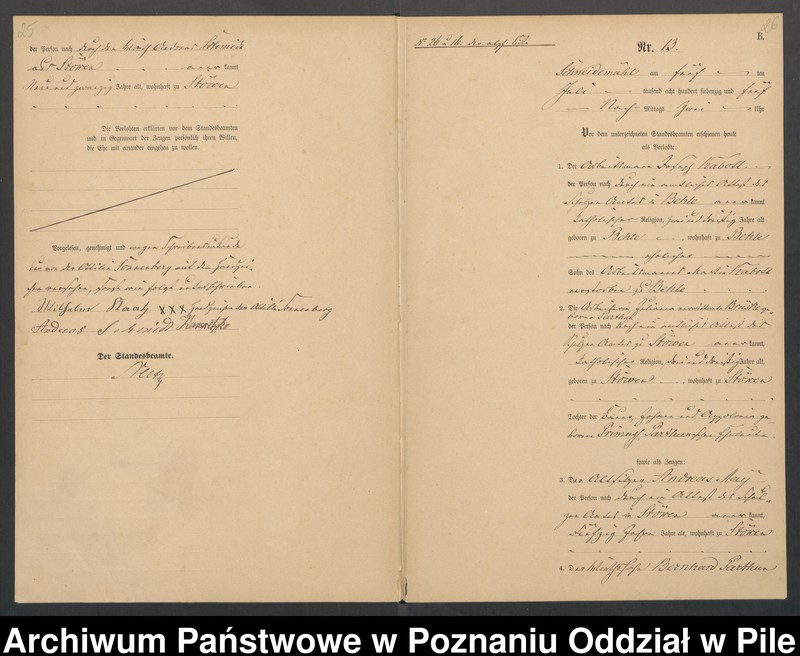 25
der Person nach durch den Wirth Andreas Schmidt
aus Stöwen kannt
Neun und zwanzig Jahre alt, wohnhaft zu Stöwen
Die Verlobten erklärten vor dem Standesbeamten
und in Gegenwart der Zeugen persönlich ihren Willen,
die Ehe mit einander eingehen zu wollen.
Vorgelesen, genehmigt und wegen Schreibensunkunde
der Ottilie Sonnenberg mit den Handzei-
chen versehen, sonst wie folgt unterschrieben.
Wilhelm Staatz XXX Handzeichen der Ottilie Sonnenberg
Andreas Schmidt
Der Standesbeamte.
26
B.
Nr. 13.
Schneidemühl am fünf ten
Juli tausend acht hundert siebenzig und fünf
Nach- Mittags zwei Uhr
Vor dem unterzeichneten Standesbeamten erschienen heute
als Verlobte:
1. Der Arbeitsmann Joseph Kabott
der Person nach durch ein amtliches Attest des
Schulzen Amtes zu Behle kannt
katholischer Religion, zwei und dreißig Jahre alt
geboren zu Behle, wohnhaft zu Behle
ehelicher
Sohn des Arbeitsmannes Martin Kabott
verstorben zu Behle
2. Die Arbeiterin Juliana verwittwete ge-
borene Parthun
der Person nach durch ein amtliches Attest des
Schulzen Amtes zu Stöwen kannt,
katholischer Religion, drei und dreißig Jahre alt,
geboren zu Stöwen, wohnhaft zu Stöwen
Tochter der Johann und Appolonia ge-
borene Parthunschen Eheleute
sowie als Zeugen:
3. Der Altsitzer Andreas May
der Person nach durch ein Attest des Schul-
zen Amtes zu Stöwen kannt,
Fünfzig Jahre Jahre alt, wohnhaft zu Stöwen
4. Der Wirthssohn Bernhard Parthun
Archiwum Państwowe w Poznaniu Oddział w Pile